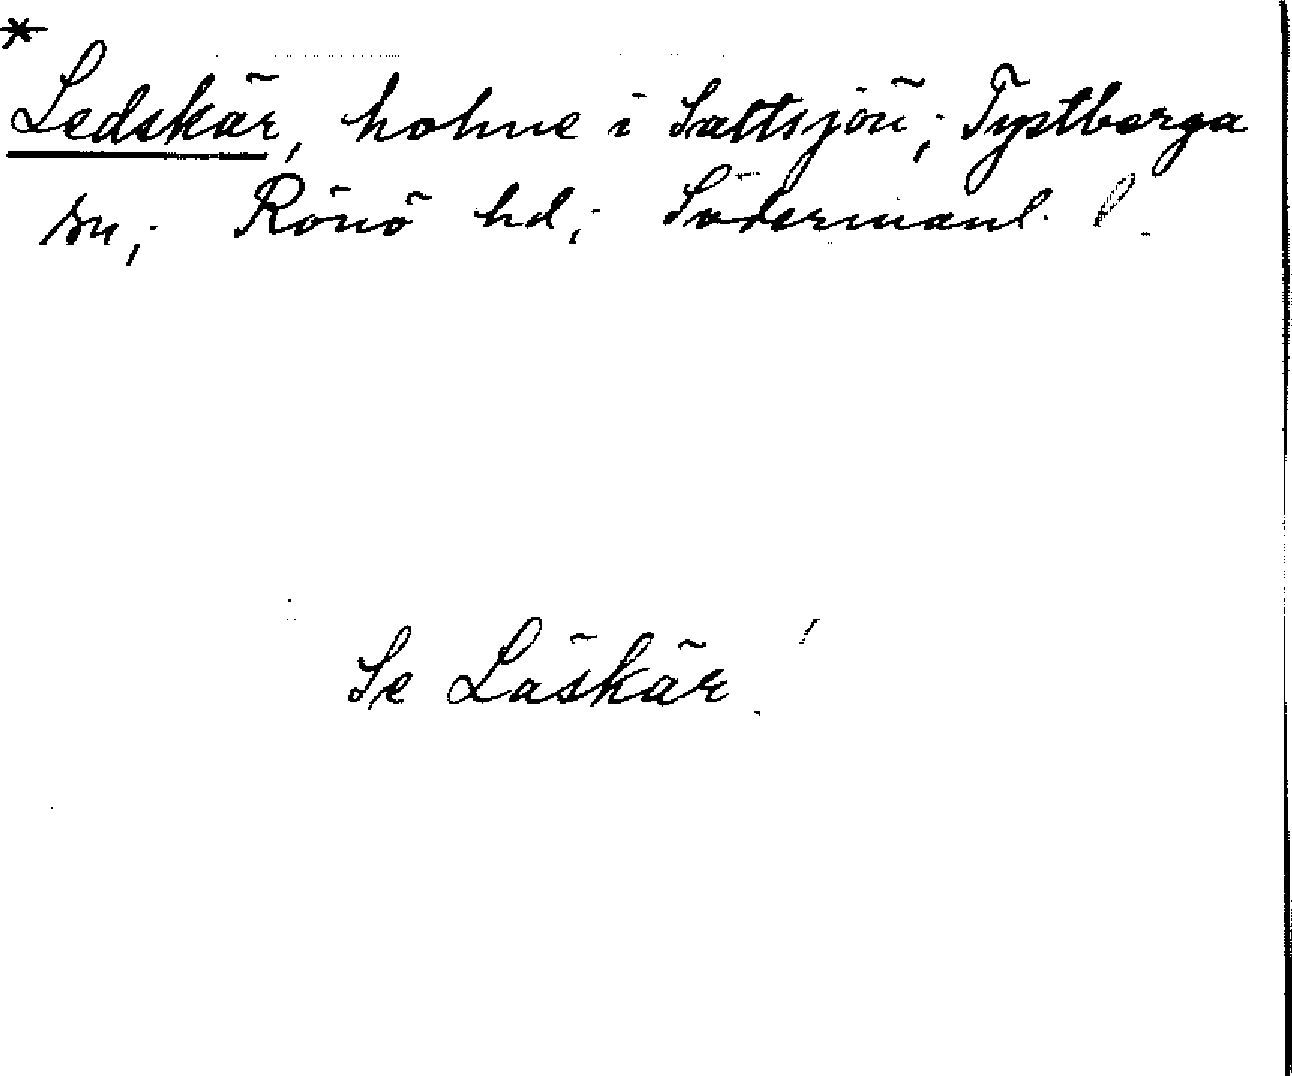 *
Ledskär, holme i Saltsjön; Tystberga
sn; Rönö hd; Södermanl. l.
Se Läskär!